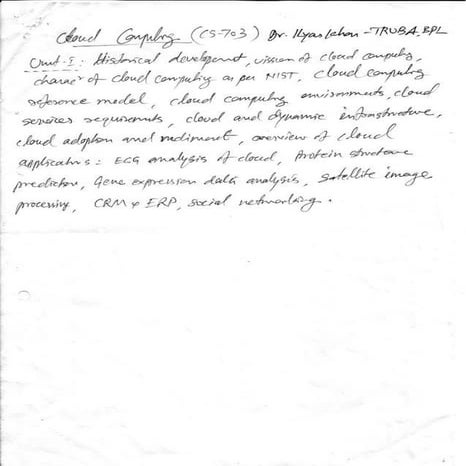 Cloud Computing (CS-703) Dr. Ilyas Khan - TRUBA, BPL
Unit-I: Historical development, vision of cloud computing,
charac of cloud computing as per NIST, cloud computing
reference model, cloud computing environments, cloud
services requirements, cloud and dynamic infrastructure,
cloud adoption and rudiment, overview of cloud
applications: ECG analysis of cloud, Protein structure
prediction, Gene expression data analysis, satellite image
processing, CRM & ERP, social networking.